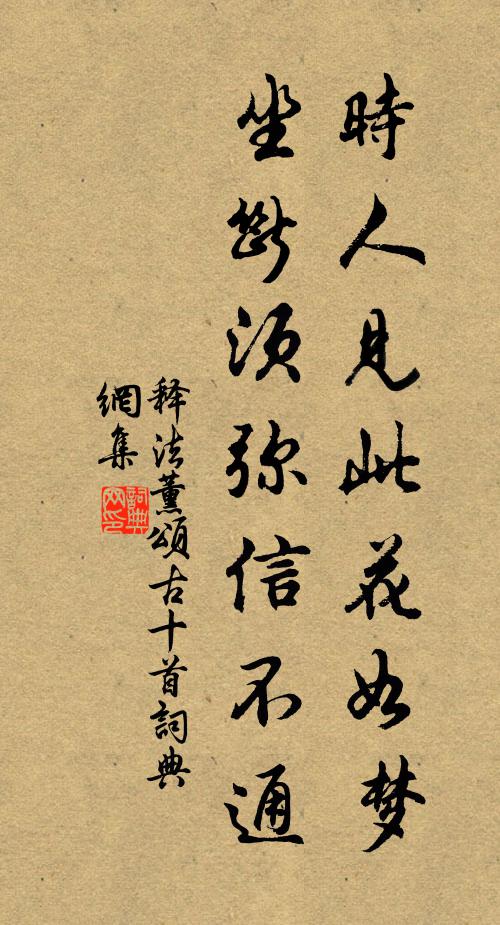 時人見此花如梦
坐斷須弥信不通
释法薰頌古十首詞典
網集
詞典
网印